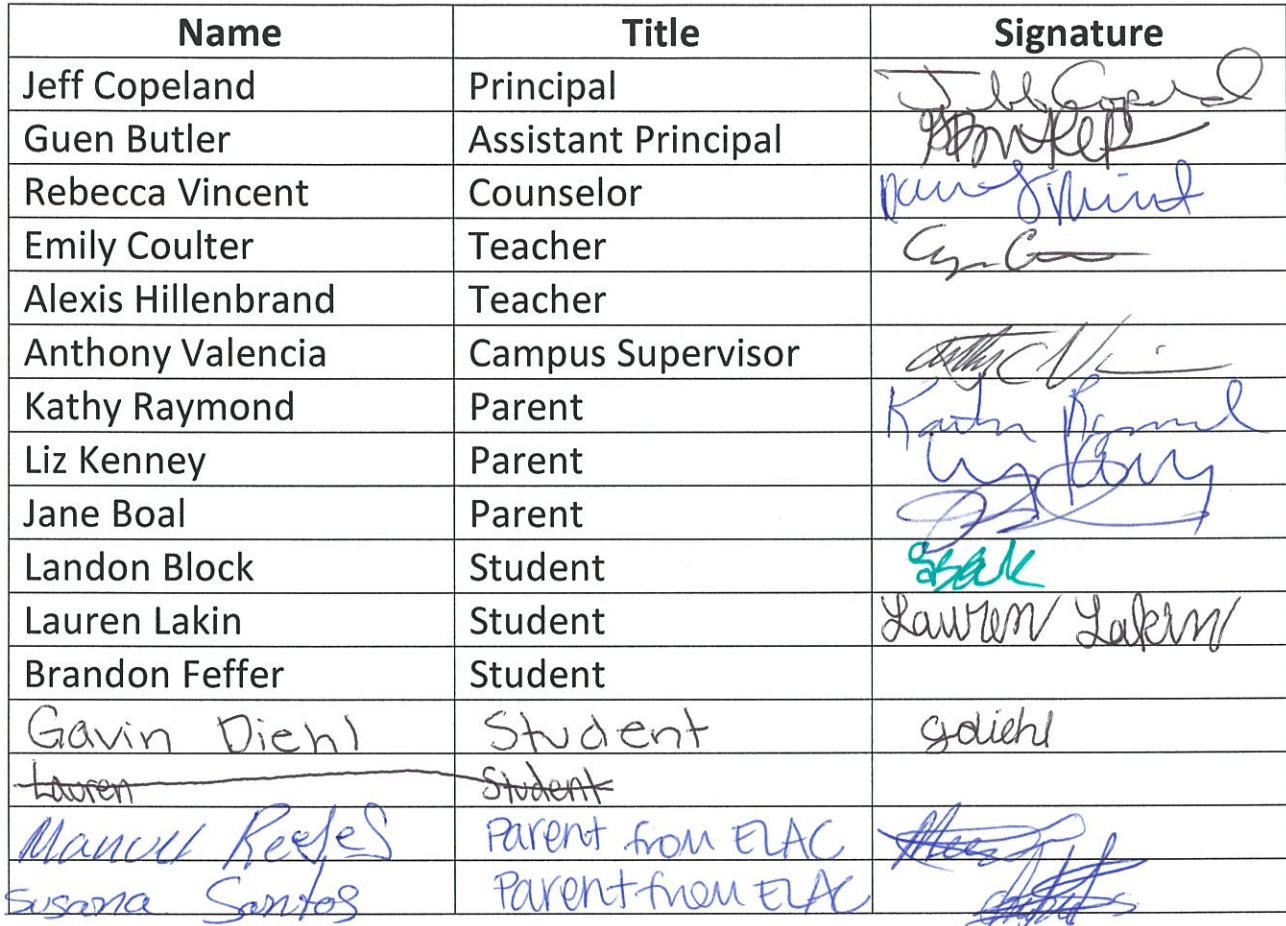 Name Title Signature
Jeff Copeland Principal Jeff Copeland
Guen Butler Assistant Principal
Rebecca Vincent Counselor
Emily Coulter Teacher
Alexis Hillenbrand Teacher
Anthony Valencia Campus Supervisor
Kathy Raymond Parent
Liz Kenney Parent
Jane Boal Parent
Landon Block Student
Lauren Lakin Student Lauren Lakin
Brandon Feffer Student
Gavin Diehl Student gdiehl
Lauren Student
Manuel Parent from ELAC
Susana Santos Parent from ELAC